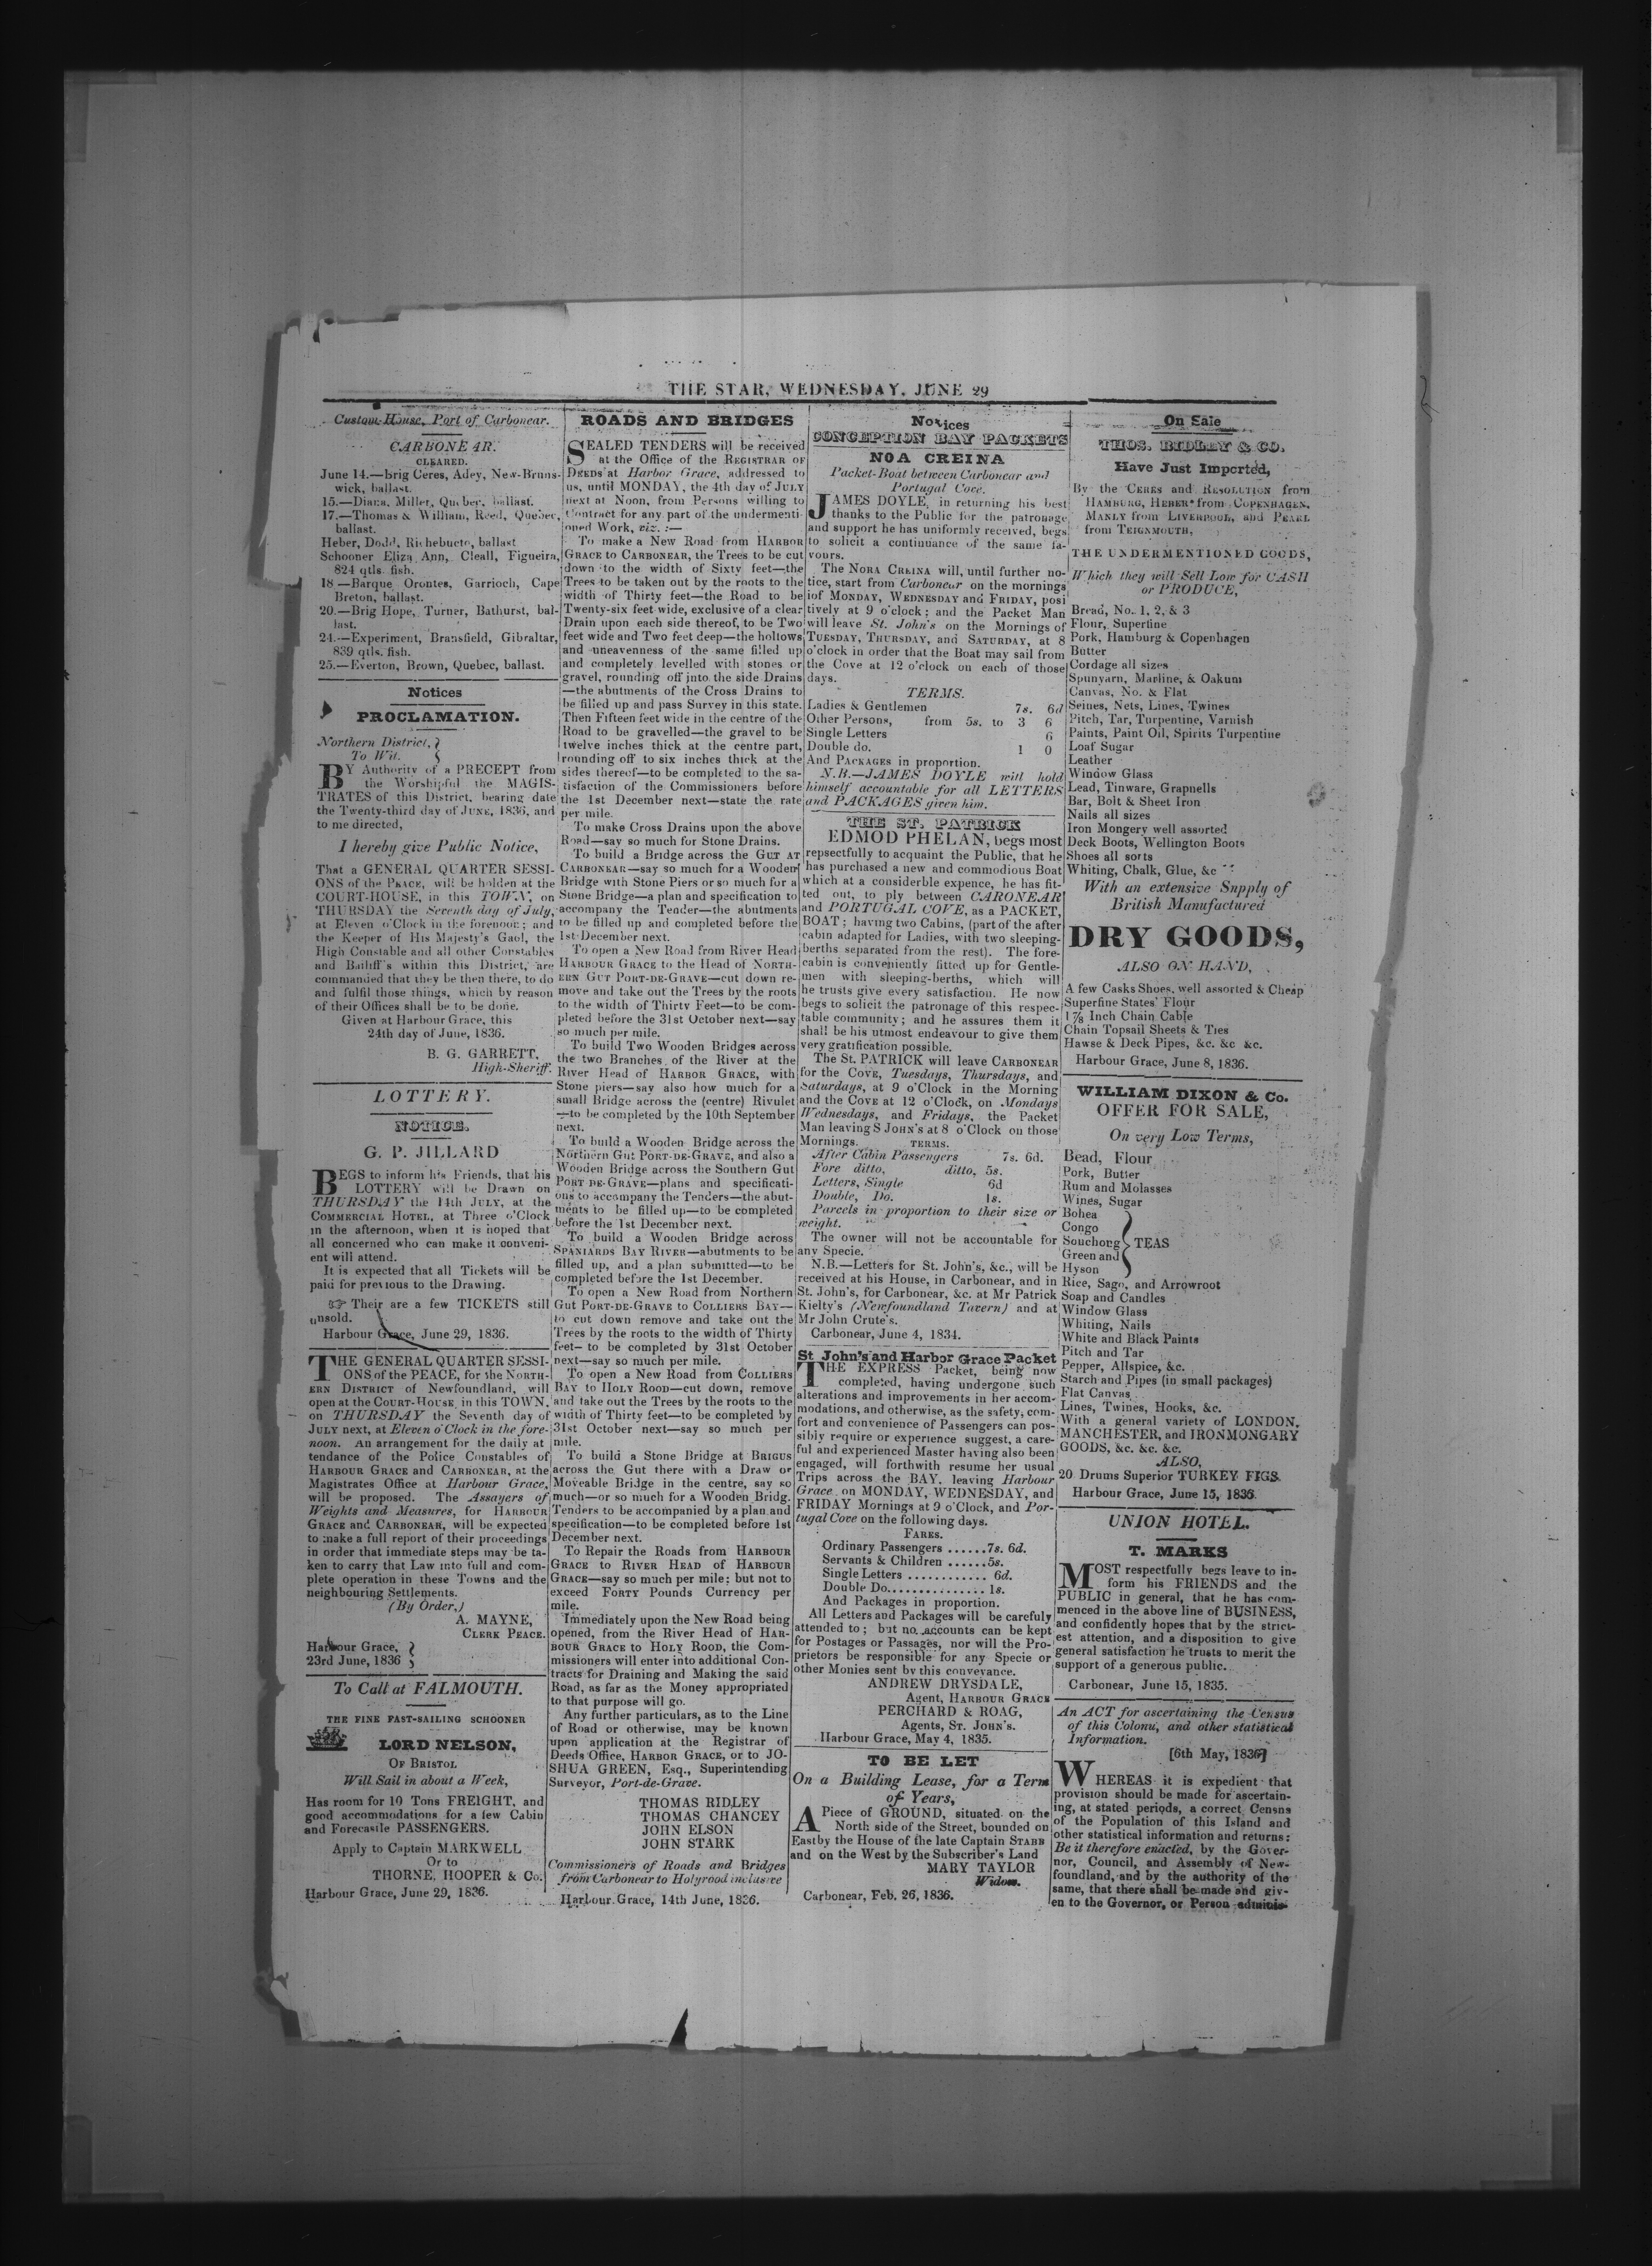 THE STAR, WEDNESDAY, JUNE 29
Custom-House, Port of Carbonear.
CARBONEAR.
CLEARED.
June 14.—brig Ceres, Adey, New-Bruns-
wick, ballast.
15.—Diana, Miller, Quebec, ballast.
17.—Thomas & William, Reed, Quebec,
ballast.
Heber, Dodd, Richebucto, ballast
Schooner Eliza Ann, Cleall, Figueira,
824 qtls. fish.
18—Barque Orontes, Garrioch, Cape
Breton, ballast.
20.—Brig Hope, Turner, Bathurst, bal-
last.
24.—Experiment, Bransfield, Gibraltar,
839 qtls. fish.
25.—Everton, Brown, Quebec, ballast.
Notices
PROCLAMATION.
Northern District, }
To Wit. {
BY Authority of a PRECEPT from
the Worshipful the MAGIS-
TRATES of this District, bearing date
the Twenty-third day of JUNE, 1836, and
to me directed,
I hereby give Public Notice,
That a GENERAL QUARTER SESSI-
ONS of the PEACE, will be holden at the
COURT-HOUSE, in this TOWN, on
THURSDAY the Seventh day of July,
at Eleven o'Clock in the forenoon; and
the Keeper of His Majesty's Gaol, the
High Constable and all other Constables
and Bailiff's within this District, are
commanded that they be then there, to do
and fulfil those things, which by reason
of their Offices shall be to be done.
Given at Harbour Grace, this
24th day of June, 1836.
B. G. GARRETT,
High-Sheriff.
LOTTERY.
NOTICE.
G. P. JILLARD
BEGS to inform his Friends, that his
LOTTERY will be Drawn on
THURSDAY the 14th JULY, at the
COMMERCIAL HOTEL, at Three o'Clock
in the afternoon, when it is hoped that
all concerned who can make it conveni-
ent will attend.
It is expected that all Tickets will be
paid for previous to the Drawing.
☞ Their are a few TICKETS still
unsold.
Harbour Grace, June 29, 1836.
THE GENERAL QUARTER SESSI-
ONS of the PEACE, for the NORTH-
ERN DISTRICT of Newfoundland, will
open at the COURT-HOUSE, in this TOWN,
on THURSDAY the Seventh day of
JULY next, at Eleven o'Clock in the fore-
noon. An arrangement for the daily at
tendance of the Police Constables of
HARBOUR GRACE and CARBONEAR, at the
Magistrates Office at Harbour Grace,
will be proposed. The Assayers of
Weights and Measures, for HARBOUR
GRACE and CARBONEAR, will be expected
to make a full report of their proceedings
in order that immediate steps may be ta-
ken to carry that Law into full and com-
plete operation in these Towns and the
neighbouring Settlements.
(By Order,)
A. MAYNE,
CLERK PEACE.
Harbour Grace, }
23rd June, 1836 }
To Call at FALMOUTH.
THE FINE FAST-SAILING SCHOONER
LORD NELSON,
OF BRISTOL
Will Sail in about a Week,
Has room for 10 Tons FREIGHT, and
good accommodations for a few Cabin
and Forecastle PASSENGERS.
Apply to Captain MARKWELL
Or to
THORNE, HOOPER & Co.
Harbour Grace, June 29, 1836.
ROADS AND BRIDGES
SEALED TENDERS will be received
at the Office of the REGISTRAR OF
DEEDS at Harbor Grace, addressed to
us, until MONDAY, the 4th day of JULY
next at Noon, from Persons willing to
Contract for any part of the undermenti-
oned Work, viz. :—
To make a New Road from HARBOR
GRACE to CARBONEAR, the Trees to be cut
down to the width of Sixty feet—the
Trees to be taken out by the roots to the
width of Thirty feet—the Road to be
Twenty-six feet wide, exclusive of a clear
Drain upon each side thereof, to be Two
feet wide and Two feet deep—the hollows
and uneavenness of the same filled up
and completely levelled with stones or
gravel, rounding off into the side Drains
—the abutments of the Cross Drains to
be filled up and pass Survey in this state.
Then Fifteen feet wide in the centre of the
Road to be gravelled—the gravel to be
twelve inches thick at the centre part,
rounding off to six inches thick at the
sides thereof—to be completed to the sa-
tisfaction of the Commissioners before
the 1st December next—state the rate
per mile.
To make Cross Drains upon the above
Road—say so much for Stone Drains.
To build a Bridge across the GUT AT
CARBONEAR—say so much for a Wooden
Bridge with Stone Piers or so much for a
Stone Bridge—a plan and specification to
accompany the Tender—the abutments
to be filled up and completed before the
1st December next.
To open a New Road from River Head
HARBOUR GRACE to the Head of NORTH-
ERN GUT PORT-DE-GRAVE—cut down re-
move and take out the Trees by the roots
to the width of Thirty Feet—to be com-
pleted before the 31st October next—say
so much per mile.
To build Two Wooden Bridges across
the two Branches of the River at the
River Head of HARBOR GRACE, with
Stone piers—say also how much for a
small Bridge across the (centre) Rivulet
—to be completed by the 10th September
next.
To build a Wooden Bridge across the
Northern Gut PORT-DE-GRAVE, and also a
Wooden Bridge across the Southern Gut
PORT-DE-GRAVE—plans and specificati-
ons to accompany the Tenders—the abut-
ments to be filled up—to be completed
before the 1st December next.
To build a Wooden Bridge across
SPANIARDS BAY RIVER—abutments to be
filled up, and a plan submitted—to be
completed before the 1st December.
To open a New Road from Northern
Gut PORT-DE-GRAVE to COLLIERS BAY—
to cut down remove and take out the
Trees by the roots to the width of Thirty
feet—to be completed by 31st October
next—say so much per mile.
To open a New Road from COLLIERS
BAY to HOLY ROOD—cut down, remove
and take out the Trees by the roots to the
width of Thirty feet—to be completed by
31st October next—say so much per
mile.
To build a Stone Bridge at BRIGUS
across the Gut there with a Draw or
Moveable Bridge in the centre, say so
much—or so much for a Wooden Bridg.
Tenders to be accompanied by a plan and
specification—to be completed before 1st
December next.
To Repair the Roads from HARBOUR
GRACE to RIVER HEAD OF HARBOUR
GRACE—say so much per mile; but not to
exceed FORTY Pounds Currency per
mile.
Immediately upon the New Road being
opened, from the River Head of HAR-
BOUR GRACE to HOLY ROOD, the Com-
missioners will enter into additional Con-
tracts for Draining and Making the said
Road, as far as the Money appropriated
to that purpose will go.
Any further particulars, as to the Line
of Road or otherwise, may be known
upon application at the Registrar of
Deeds Office, HARBOR GRACE, or to JO-
SHUA GREEN, Esq., Superintending
Surveyor, Port-de-Grave.
THOMAS RIDLEY
THOMAS CHANCEY
JOHN ELSON
JOHN STARK
Commissioners of Roads and Bridges
from Carbonear to Holyrood inclusive
Harbour Grace, 14th June, 1836.
Notices
CONCEPTION BAY PACKETS
NOA CREINA
Packet-Boat between Carbonear and
Portugal Cove.
JAMES DOYLE, in returning his best
thanks to the Public for the patronage
and support he has uniformly received, begs
to solicit a continuance of the same fa-
vours.
The NORA CREINA will, until further no-
tice, start from Carbonear on the mornings
of MONDAY, WEDNESDAY and FRIDAY, posi
tively at 9 o'clock; and the Packet Man
will leave St. John's on the Mornings of
TUESDAY, THURSDAY, and SATURDAY, at 8
o'clock in order that the Boat may sail from
the Cove at 12 o'clock on each of those
days.
TERMS.
Ladies & Gentlemen 7s. 6d
Other Persons, from 5s. to 3 6
Single Letters 6
Double do. 1 0
And PACKAGES in proportion.
N.B.—JAMES DOYLE will hold
himself accountable for all LETTERS
and PACKAGES given him.
THE ST. PATRICK
EDMOD PHELAN, begs most
repsectfully to acquaint the Public, that he
has purchased a new and commodious Boat
which at a considerble expence, he has fit-
ted out, to ply between CARONEAR
and PORTUGAL COVE, as a PACKET,
BOAT; having two Cabins, (part of the after
cabin adapted for Ladies, with two sleeping-
berths separated from the rest). The fore-
cabin is conveniently fitted up for Gentle-
men with sleeping-berths, which will
he trusts give every satisfaction. He now
begs to solicit the patronage of this respec-
table community; and he assures them it
shall be his utmost endeavour to give them
very gratification possible.
The St. PATRICK will leave CARBONEAR
for the COVE, Tuesdays, Thursdays, and
Saturdays, at 9 o'Clock in the Morning
and the COVE at 12 o'Clock, on Mondays
Wednesdays, and Fridays, the Packet
Man leaving S JOHN'S at 8 o'Clock on those
Mornings. TERMS.
After Cabin Passengers 7s. 6d.
Fore ditto, ditto, 5s.
Letters, Single 6d
Double, Do. 1s.
Parcels in proportion to their size or
weight.
The owner will not be accountable for
any Specie.
N.B.—Letters for St. John's, &c., will be
received at his House, in Carbonear, and in
St. John's, for Carbonear, &c. at Mr Patrick
Kielty's (Newfoundland Tavern) and at
Mr John Crute's.
Carbonear, June 4, 1834.
St John's and Harbor Grace Packet
THE EXPRESS Packet, being now
completed, having undergone such
alterations and improvements in her accom-
modations, and otherwise, as the safety, com-
fort and convenience of Passengers can pos-
sibly require or experience suggest, a care-
ful and experienced Master having also been
engaged, will forthwith resume her usual
Trips across the BAY, leaving Harbour
Grace on MONDAY, WEDNESDAY, and
FRIDAY Mornings at 9 o'Clock, and Por-
tugal Cove on the following days.
FARES.
Ordinary Passengers ......7s. 6d.
Servants & Children ......5s.
Single Letters ............ 6d.
Double Do............... 1s.
And Packages in proportion.
All Letters and Packages will be carefuly
attended to; but no accounts can be kept
for Postages or Passages, nor will the Pro-
prietors be responsible for any Specie or
other Monies sent by this conveyance.
ANDREW DRYSDALE,
Agent, HARBOUR GRACE
PERCHARD & BOAG,
Agents, ST. JOHN'S.
Harbour Grace, May 4, 1835.
TO BE LET
On a Building Lease, for a Term
of Years,
A Piece of GROUND, situated on the
North side of the Street, bounded on
East by the House of the late Captain STABB
and on the West by the Subscriber's Land
MARY TAYLOR
Widow.
Carbonear, Feb. 26, 1836.
On Sale
THOS. RIDLEY & CO.
Have Just Imported,
By the CERES and RESOLUTION from
HAMBURG, HEBER from COPENHAGEN,
MANLY from LIVERPOOL, and PEARL
from TEIGNMOUTH,
THE UNDERMENTIONED GOODS,
Which they will Sell Low for CASH
or PRODUCE,
Bread, No. 1, 2, & 3
Flour, Superfine
Pork, Hamburg & Copenhagen
Butter
Cordage all sizes
Spunyarn, Marline, & Oakum
Canvas, No. & Flat
Seines, Nets, Lines, Twines
Pitch, Tar, Turpentine, Varnish
Paints, Paint Oil, Spirits Turpentine
Loaf Sugar
Leather
Window Glass
Lead, Tinware, Grapnells
Bar, Bolt & Sheet Iron
Nails all sizes
Iron Mongery well assorted
Deck Boots, Wellington Boots
Shoes all sorts
Whiting, Chalk, Glue, &c
With an extensive Snpply of
British Manufactured
DRY GOODS,
ALSO ON HAND,
A few Casks Shoes, well assorted & Cheap
Superfine States' Flour
1⅞ Inch Chain Cable
Chain Topsail Sheets & Ties
Hawse & Deck Pipes, &c. &c &c.
Harbour Grace, June 8, 1836.
WILLIAM DIXON & Co.
OFFER FOR SALE,
On very Low Terms,
Bead, Flour
Pork, Butter
Rum and Molasses
Wines, Sugar
Bohea
Congo
Souchong } TEAS
Green and
Hyson
Rice, Sago, and Arrowroot
Soap and Candles
Window Glass
Whiting, Nails
White and Black Paints
Pitch and Tar
Pepper, Allspice, &c.
Starch and Pipes (in small packages)
Flat Canvas
Lines, Twines, Hooks, &c.
With a general variety of LONDON,
MANCHESTER, and IRONMONGARY
GOODS, &c. &c. &c.
ALSO,
20 Drums Superior TURKEY FIGS.
Harbour Grace, June 15, 1836.
UNION HOTEL.
T. MARKS
MOST respectfully begs leave to in-
form his FRIENDS and the
PUBLIC in general, that he has com-
menced in the above line of BUSINESS,
and confidently hopes that by the strict-
est attention, and a disposition to give
general satisfaction he trusts to merit the
support of a generous public.
Carbonear, June 15, 1835.
An ACT for ascertaining the Census
of this Colonu, and other statistical
Information.
[6th May, 1836]
WHEREAS it is expedient that
provision should be made for ascertain-
ing, at stated periods, a correct Censns
of the Population of this Island and
other statistical information and returns:
Be it therefore enacted, by the Gover-
nor, Council, and Assembly of New-
foundland, and by the authority of the
same, that there shall be made and giv-
en to the Governor, or Person adminis-